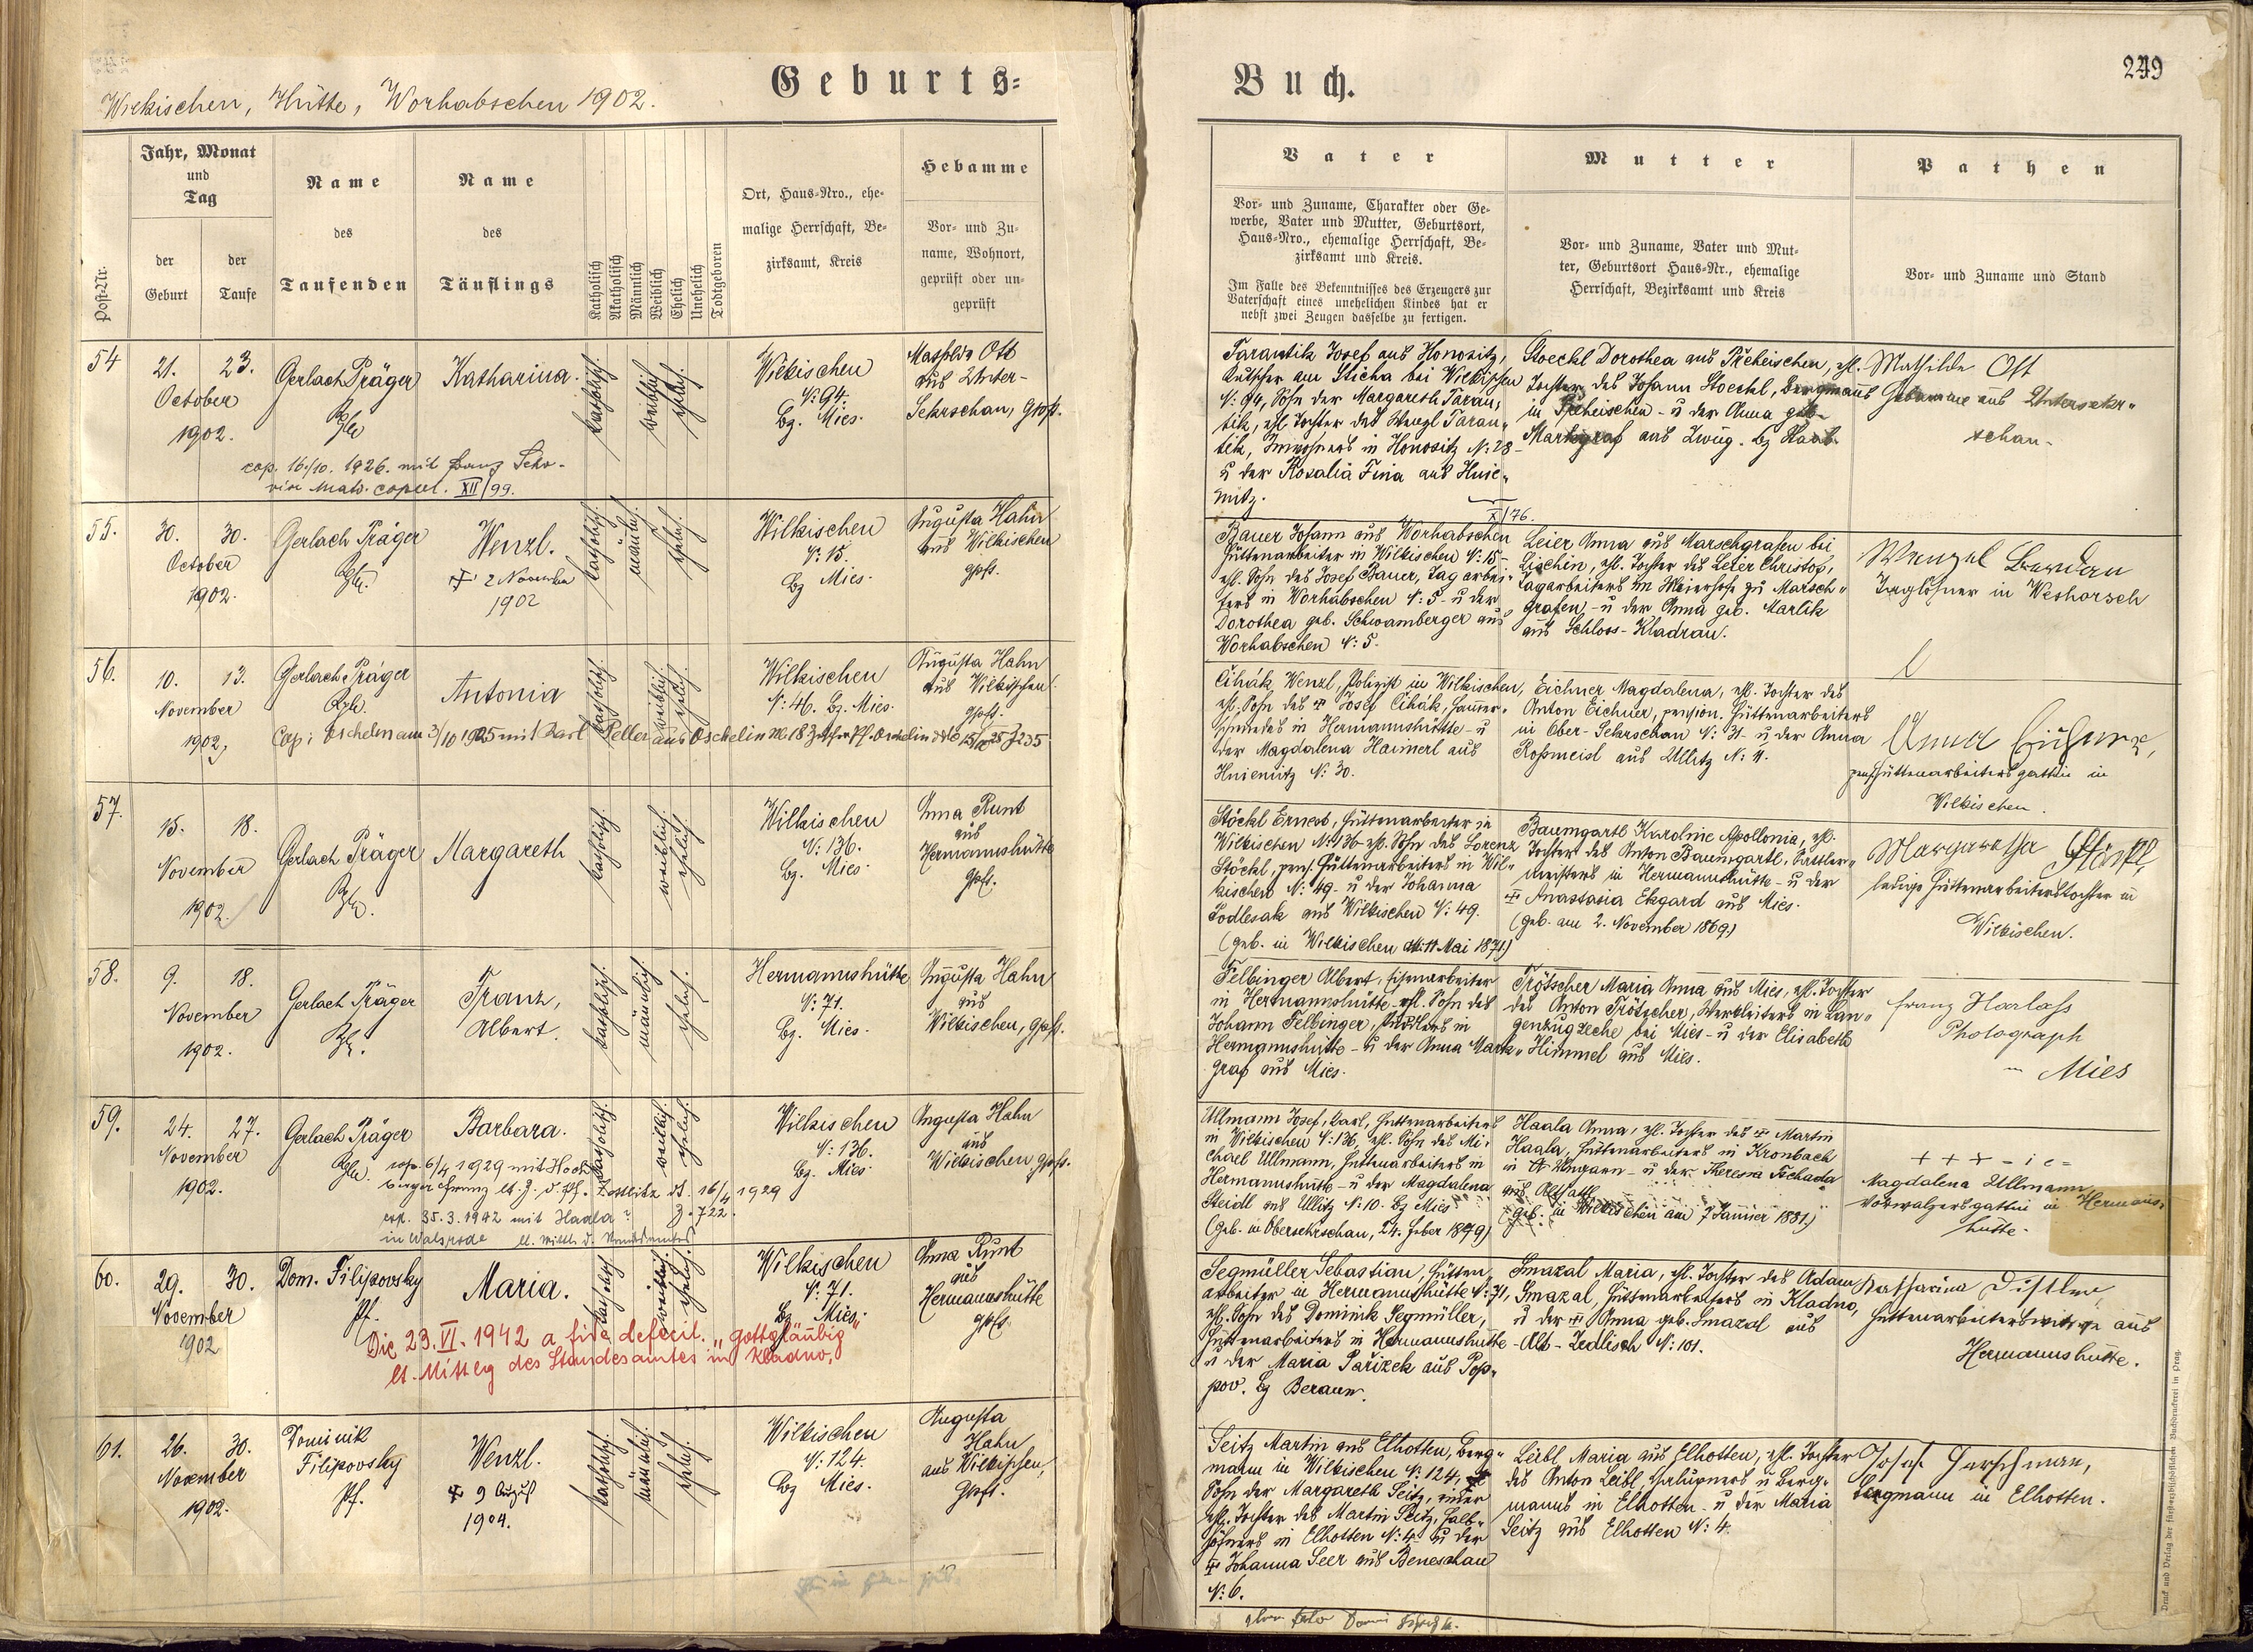 Wilkischen, Hütte, Worhabschen 1902.
Geburts=
Jahr, Monat
und
Tag
Post-Nr.
der
Geburt
der
Taufe
Name
des
Taufenden
Name
des
Täuflings
Katholisch
Akatholisch
Männlich
Weiblich
Ehelich
Unehelich
Todtgeboren
Ort, Haus-Nro., ehe-
malige Herrschaft, Be-
zirksamt, Kreis
Hebamme
Vor- und Zu-
name, Wohnort,
geprüft oder un-
geprüft
54
21.
23.
October
1902.
Gerlach Präger
Katharina.
katholisch.
weiblich.
ehelich.
Wilkischen
N: 94.
Bz. Mies.
Mathilde Ott
aus Unter-
Sekerschan, gepft.
cop. 16./10. 1926. mit Franz
matr. copul. XII/99.
55.
30.
30.
October
1902.
Gerlach Präger
Wenzl.
2 November
1902
katholisch.
männlich.
ehelich.
Wilkischen
N: 15.
Bz Mies.
Augusta Hahn
aus Wilkischen
gpft.
56.
10.
13.
November
1902,
Gerlach Präger
Antonia
katholisch.
weiblich.
ehelich.
Wilkischen
N: 46. Bz. Mies.
Augusta Hahn
aus Wilkischen
gpft.
Cop: Oschelin am 3/10 1925 mit Karl Peller aus Oschelin N: 18
57.
15.
18.
November
1902.
Gerlach Präger
Margareth
katholisch.
weiblich.
ehelich.
Wilkischen
N: 136.
Bz. Mies.
Anna Runt
aus
Hermannshütte
gpft.
58.
9.
18.
November
1902.
Gerlach Präger
Franz,
Albert.
katholisch.
männlich.
ehelich.
Hermannshütte
N: 71.
Bz. Mies.
Augusta Hahn
aus
Wilkischen, gpft.
59.
24.
27.
November
1902.
Gerlach Präger
Barbara.
katholisch.
weiblich.
ehelich.
Wilkischen
N: 136.
Bz. Mies.
Augusta Hahn
aus
Wilkischen gpft.
cop. 6/4 1929 mit Hoch
berger Franz lt. Z. d. Pf. dt. 16/4 1929
cop. 35.3.1942 mit Haala? Z. 722.
in Walsrode
60.
29.
30.
November
1902
Dom. Filipovsky
Pf.
Maria.
katholisch
weiblich.
ehelich.
Wilkischen
N: 71.
Bz. Mies.
Anna Runt
aus
Hermannshütte
gpft.
Die 23. VI. 1942 a fide defecit. "gottgläubig"
lt. Mittlg des Standesamtes in Kladno.
61.
26.
30.
November
1902.
Dominik
Filipovsky
Pf.
Wenzl.
9 August
1904.
katholisch.
männlich.
ehelich.
Wilkischen
N: 124.
Bz Mies.
Augusta
Hahn
aus Wilkischen,
gpft.
Buch.
249
Vater
Vor- und Zuname, Charakter oder Ge-
werbe, Vater und Mutter, Geburtsort,
Haus-Nro., ehemalige Herrschaft, Be-
zirksamt und Kreis.
Im Falle des Bekenntnisses des Erzeugers zur
Vaterschaft eines unehelichen Kindes hat er
nebst zwei Zeugen dasselbe zu fertigen.
Mutter
Vor- und Zuname, Vater und Mut-
ter, Geburtsort Haus-Nr., ehemalige
Herrschaft, Bezirksamt und Kreis
Pathen
Vor- und Zuname und Stand
Tarantik Josef aus Honositz,
Kutscher am Sticha bei Wilkischen
N: 94, Sohn der Margareth Taran-
tik, ehl. Tochter des Wenzl Taran-
tik, Inwohners in Honositz N: 28-
u der Rosalia Fina aus Hnie-
mitz.
Stoeckl Dorothea aus Přeheischen, ehl.
Tochter des Johann Stoeckl, Bergmanns
in Přeheischen - u der Anna geb.
Markgraf aus Zwug. Bz Staab.
Mathilde Ott
Hebamme aus Unterseker-
schan -
X/76.
Bauer Johann aus Worhabschen
Hüttenarbeiter in Wilkischen N: 15-
ehl. Sohn des Josef Bauer, Tagarbei-
ters in Worhabschen N: 5- u der
Dorothea geb. Schwamberger aus
Worhabschen N: 5.
Leier Anna aus Marschgrafen bei
Lischin, ehl. Tochter des Leier Christof,
Tagarbeiters im Meierhofe zu Marsch-
grafen - u der Anna geb. Martik
aus Schloss-Kladrau.
Wenzel
Taglöhner in Weshorsch
Čihák Wenzl, Polizist in Wilkischen,
ehl. Sohn des Josef Čihák, Hammer-
schmiedes in Hermannshütte - u
der Magdalena Haimerl aus
Hniemitz N: 30.
Eichner Magdalena, ehl. Tochter des
Anton Eichner, pension. Hüttenarbeiters
in Ober-Sekerschan N: 31- u der Anna
Roßmeisl aus Ullitz N: 4.
Anna
pens. Hüttenarbeitersgattin in
Wilkischen.
Stöckl Ernest, Hüttenarbeiter in
Wilkischen N: 136- ehl. Sohn des Lorenz
Stöckl, pens. Hüttenarbeiters in Wil-
kischen N: 49- u der Johanna
Podlesak aus Wilkischen N: 49.
(geb. in Wilkischen 11 Mai 1871)
Baumgartl Karoline Apollonia, ehl.
Tochter des Anton Baumgartl, Sattler-
meisters in Hermannshütte - u der
Anastasia Ekgard aus Mies.
(geb. am 2. November 1869)
Margaretha Stöckl,
ledige Hüttenarbeiterstochter in
Wilkischen.
Felbinger Albert, Eisenarbeiter
in Hermannshütte - ehl. Sohn des
Johann Felbinger, Puddlers in
Hermannshütte - u der Anna Mark-
graf aus Mies.
Trötscher Maria Anna aus Mies, ehl. Tochter
des Anton Trötscher, Werkleiters in Lan-
genzugzeche bei Mies - u der Elisabeth
Himmel aus Mies.
Franz Haalass
Photograph
Mies
Ullmann Josef, Karl, Hüttenarbeiters
in Wilkischen N: 136, ehl. Sohn des Mi-
chael Ullmann, Hüttenarbeiters in
Hermannshütte - u der Magdalena
Steidl aus Ullitz N: 10. Bz Mies
(geb. in Obersekerschan, 24. Feber 1879)
Haala Anna, ehl. Tochter des Martin
Haala, Hüttenarbeiters in Kronbach
in Ungarn - u der Theresia Fechada
aus Altsattl
(geb. in Wilkischen am 7 Jänner 1881.)
+ + +
Magdalena Ullmann
Vorwalzersgattin in Hermanns-
hütte.
Segmüller Sebastian, Hütten-
arbeiter in Hermannshütte N: 71,
ehl. Sohn des Dominik Segmüller,
Hüttenarbeiters in Hermannshütte -
u der Maria Pařizek aus Pop-
pov. Bz Beraun.
Smazal Maria, ehl. Tochter des Adam
Smazal, Hüttenarbeiters in Kladno,
u der Anna geb. Smazal aus
Alt-Zedlisch N: 101.
Katharina Distler,
Hüttenarbeiterswitwe aus
Hermannshütte.
Seitz Martin aus Elhotten, Berg-
mann in Wilkischen N: 124,
Sohn der Margareth Seitz, einer
ehl. Tochter des Martin Seitz, Halb-
höfners in Elhotten N: 4- u der
Johanna Seer aus Beneschau
N: 6.
Leibl Maria aus Elhotten, ehl. Tochter
des Anton Leibl, Chalupners u Berg-
manns in Elhotten - u der Maria
Seitz aus Elhotten N: 4.
Josef Herschman,
Bergmann in Elhotten.
Druck und Verlag der fürsterzbischöflichen Buchdruckerei in Prag.